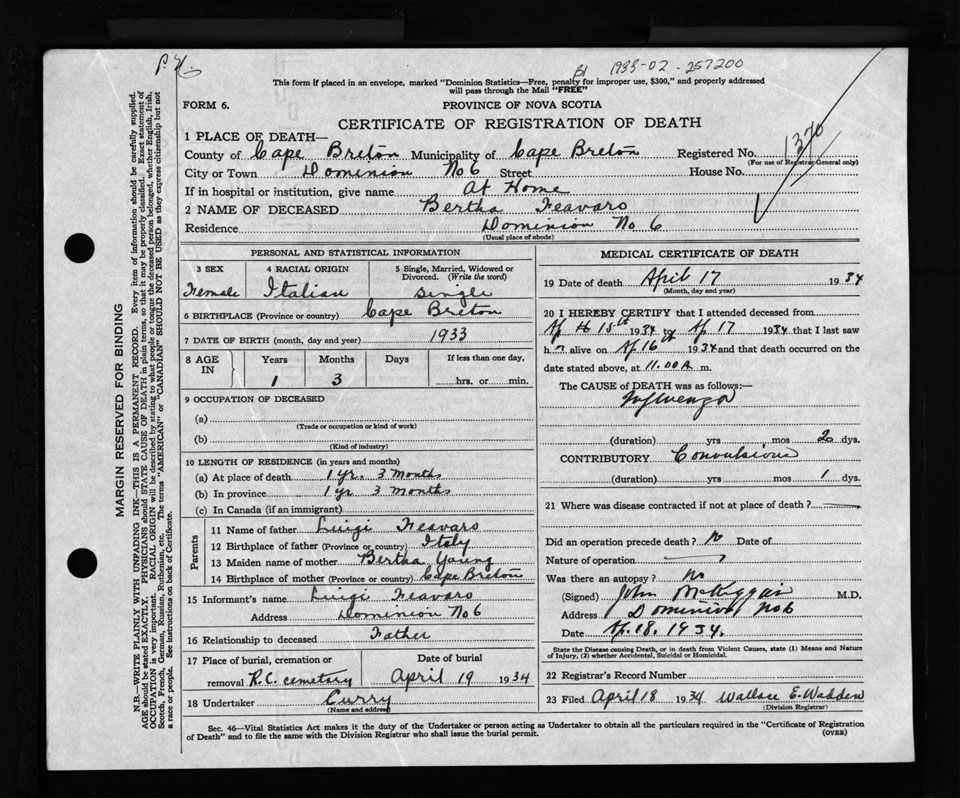 P. H.
1933-02-257200
This form if placed in an envelope, marked "Dominion Statistics—Free, penalty for improper use, $300," and properly addressed
will pass through the Mail "FREE"
FORM 6.
PROVINCE OF NOVA SCOTIA
CERTIFICATE OF REGISTRATION OF DEATH
1370
1 PLACE OF DEATH—
County of Cape Breton Municipality of Cape Breton Registered No.
(For use of Registrar General only)
City or Town Dominion No 6 Street House No.
If in hospital or institution, give name At Home
2 NAME OF DECEASED Bertha Feavaro
Residence Dominion No 6
(Usual place of abode)
PERSONAL AND STATISTICAL INFORMATION
3 SEX 4 RACIAL ORIGIN 5 Single, Married, Widowed or Divorced. (Write the word)
Female Italian single
6 BIRTHPLACE (Province or country) Cape Breton
7 DATE OF BIRTH (month, day and year) 1933
8 AGE IN Years Months Days If less than one day,
1 3 hrs. or min.
9 OCCUPATION OF DECEASED
(a)
(Trade or occupation or kind of work)
(b)
(Kind of industry)
10 LENGTH OF RESIDENCE (in years and months)
(a) At place of death 1 yr. 3 months
(b) In province 1 yr 3 months
(c) In Canada (if an immigrant)
Parents
11 Name of father Luigi Feavaro
12 Birthplace of father (Province or country) Italy
13 Maiden name of mother Bertha Young
14 Birthplace of mother (Province or country) Cape Breton
15 Informant's name Luigi Feavaro
Address Dominion No 6
16 Relationship to deceased Father
17 Place of burial, cremation or Date of burial
removal R.C. cemetary April 19 1934
18 Undertaker Curry
(Name and address)
MEDICAL CERTIFICATE OF DEATH
19 Date of death April 17 1934
(Month, day and year)
20 I HEREBY CERTIFY that I attended deceased from
Ap 15th 1934 to Ap 17 1934 that I last saw
h alive on Ap 16 1934 and that death occurred on the
date stated above, at 11.00 A. m.
The CAUSE OF DEATH was as follows:—
Influenza
(duration) yrs mos 2 dys.
CONTRIBUTORY Convulsions
(duration) yrs. mos. 1 dys.
21 Where was disease contracted if not at place of death?
Did an operation precede death? No Date of
Nature of operation
Was there an autopsy? No
(Signed) John McKiggan M.D.
Address Dominion No 6
Date Ap. 18. 1934.
State the Disease causing Death, or in death from Violent Causes, state (1) Means and Nature
of Injury, (2) whether Accidental, Suicidal or Homicidal.
22 Registrar's Record Number
23 Filed April 18 1934 Wallace E. Wadden
(Division Registrar)
Sec. 46—Vital Statistics Act makes it the duty of the Undertaker or person acting as Undertaker to obtain all the particulars required in the "Certificate of Registration
of Death" and to file the same with the Division Registrar who shall issue the burial permit.
(OVER)
MARGIN RESERVED FOR BINDING
N.B.—WRITE PLAINLY WITH UNFADING INK—THIS IS A PERMANENT RECORD. Every item of information should be carefully supplied.
AGE should be stated EXACTLY. PHYSICIANS should STATE CAUSE OF DEATH in plain terms, so that it may be properly classified. Exact statement of
OCCUPATION is very important. RACIAL ORIGIN will be described by stating to what people or tongue the deceased person belonged, whether English, Irish,
Scotch, French, German, Russian, Ruthenian, etc. The terms "AMERICAN" or "CANADIAN" SHOULD NOT BE USED as they express citizenship but not
a race or people. See instructions on back of Certificate.